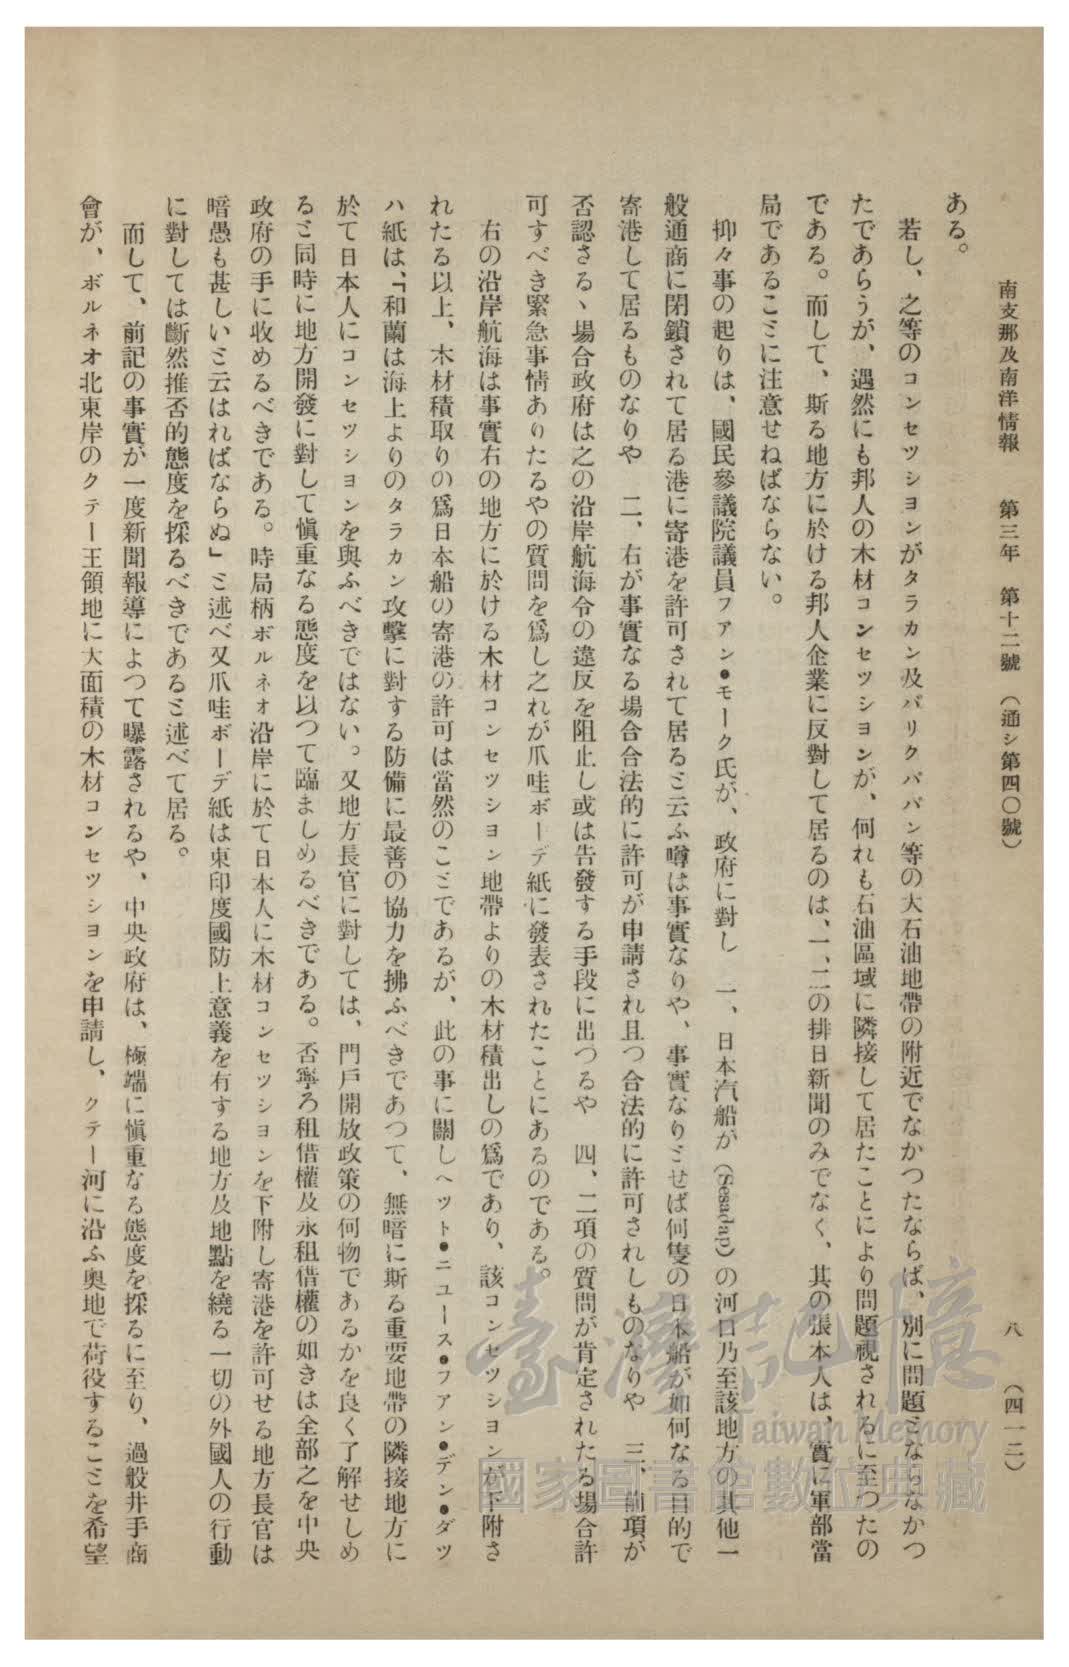 南支那及南洋情報　第三年　第十二號　（通シ第四〇號）　八　（四一二）
ある。
若し、之等のコンセツシヨンがタラカン及バリクパパン等の大石油地帶の附近でなかつたならば、別に問題とならなかつ
たであらうが、遇然にも邦人の木材コンセツシヨンが、何れも石油區域に隣接して居たことにより問題視されるに至つたの
である。而して、斯る地方に於ける邦人企業に反對して居るのは、一、二の排日新聞のみでなく、其の張本人は、實に軍部當
局であることに注意せねばならない。
抑々事の起りは、國民參議院議員フアン●モーク氏が、政府に對し　一、日本汽船が（Sesadap）の河口乃至該地方の其他一
般通商に閉鎖されて居る港に寄港を許可されて居ると云ふ噂は事實なりや、事實なりとせば何隻の日本船が如何なる目的で
寄港して居るものなりや　二、右が事實なる場合合法的に許可が申請され且つ合法的に許可されしものなりや　三、前項が
否認さるゝ場合政府は之の沿岸航海令の違反を阻止し或は告發する手段に出つるや　四、二項の質問が肯定されたる場合許
可すべき緊急事情ありたるやの質問を爲し之れが爪哇ボーデ紙に發表されたことにあるのである。
右の沿岸航海は事實右の地方に於ける木材コンセツシヨン地帶よりの木材積出しの爲であり、該コンセツシヨンが下附さ
れたる以上、木材積取りの爲日本船の寄港の許可は當然のことであるが、此の事に關しヘツト●ニユース●フアン●デン●ダツ
ハ紙は、「和蘭は海上よりのタラカン攻擊に對する防備に最善の協力を拂ふべきであつて、無暗に斯る重要地帶の隣接地方に
於て日本人にコンセツシヨンを與ふべきではない。又地方長官に對しては、門戶開放政策の何物であるかを良く了解せしめ
ると同時に地方開發に對して愼重なる態度を以つて臨ましめるべきである。否寧ろ租借權及永租借權の如きは全部之を中央
政府の手に收めるべきである。時局柄ボルネオ沿岸に於て日本人に木材コンセツシヨンを下附し寄港を許可せる地方長官は
暗愚も甚しいと云はればならぬ」と述べ又爪哇ボーデ紙は東印度國防上意義を有する地方及地點を繞る一切の外國人の行動
に對しては斷然推否的態度を採るべきであると述べて居る。
而して、前記の事實が一度新聞報導によつて曝露されるや、中央政府は、極端に愼重なる態度を採るに至り、過般井手商
會が、ボルネオ北東岸のクテー王領地に大面積の木材コンセツシヨンを申請し、クテー河に沿ふ奧地で荷役することを希望
臺灣記憶
Taiwan Memory
國家圖書館數位典藏